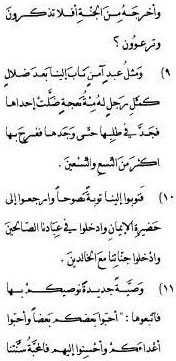 وأخرجه من الجنة أفلا تذكرون
وترعوون ؟
(٩) ومثل عبد آمن تاب إلينا بعد ضلال
كمثل رجل له مئة نعجة ضلت إحداها
فجد في طلبها حتى وجدها ففرح بها
أكثر من التسع والتسعين .
(١٠) فتوبوا إلينا توبة نصوحا وارجعوا إلى
حضيرة الإيمان وادخلوا في عبادنا الصالحين
وادخلوا جناتنا مع الخالدين .
(١١) وصية جديدة نوصيكم بها
فاتبعوها : "أحبوا بعضكم بعضا وأحبوا
أعداءكم وأحسنوا إليهم فالمحبة سنتنا